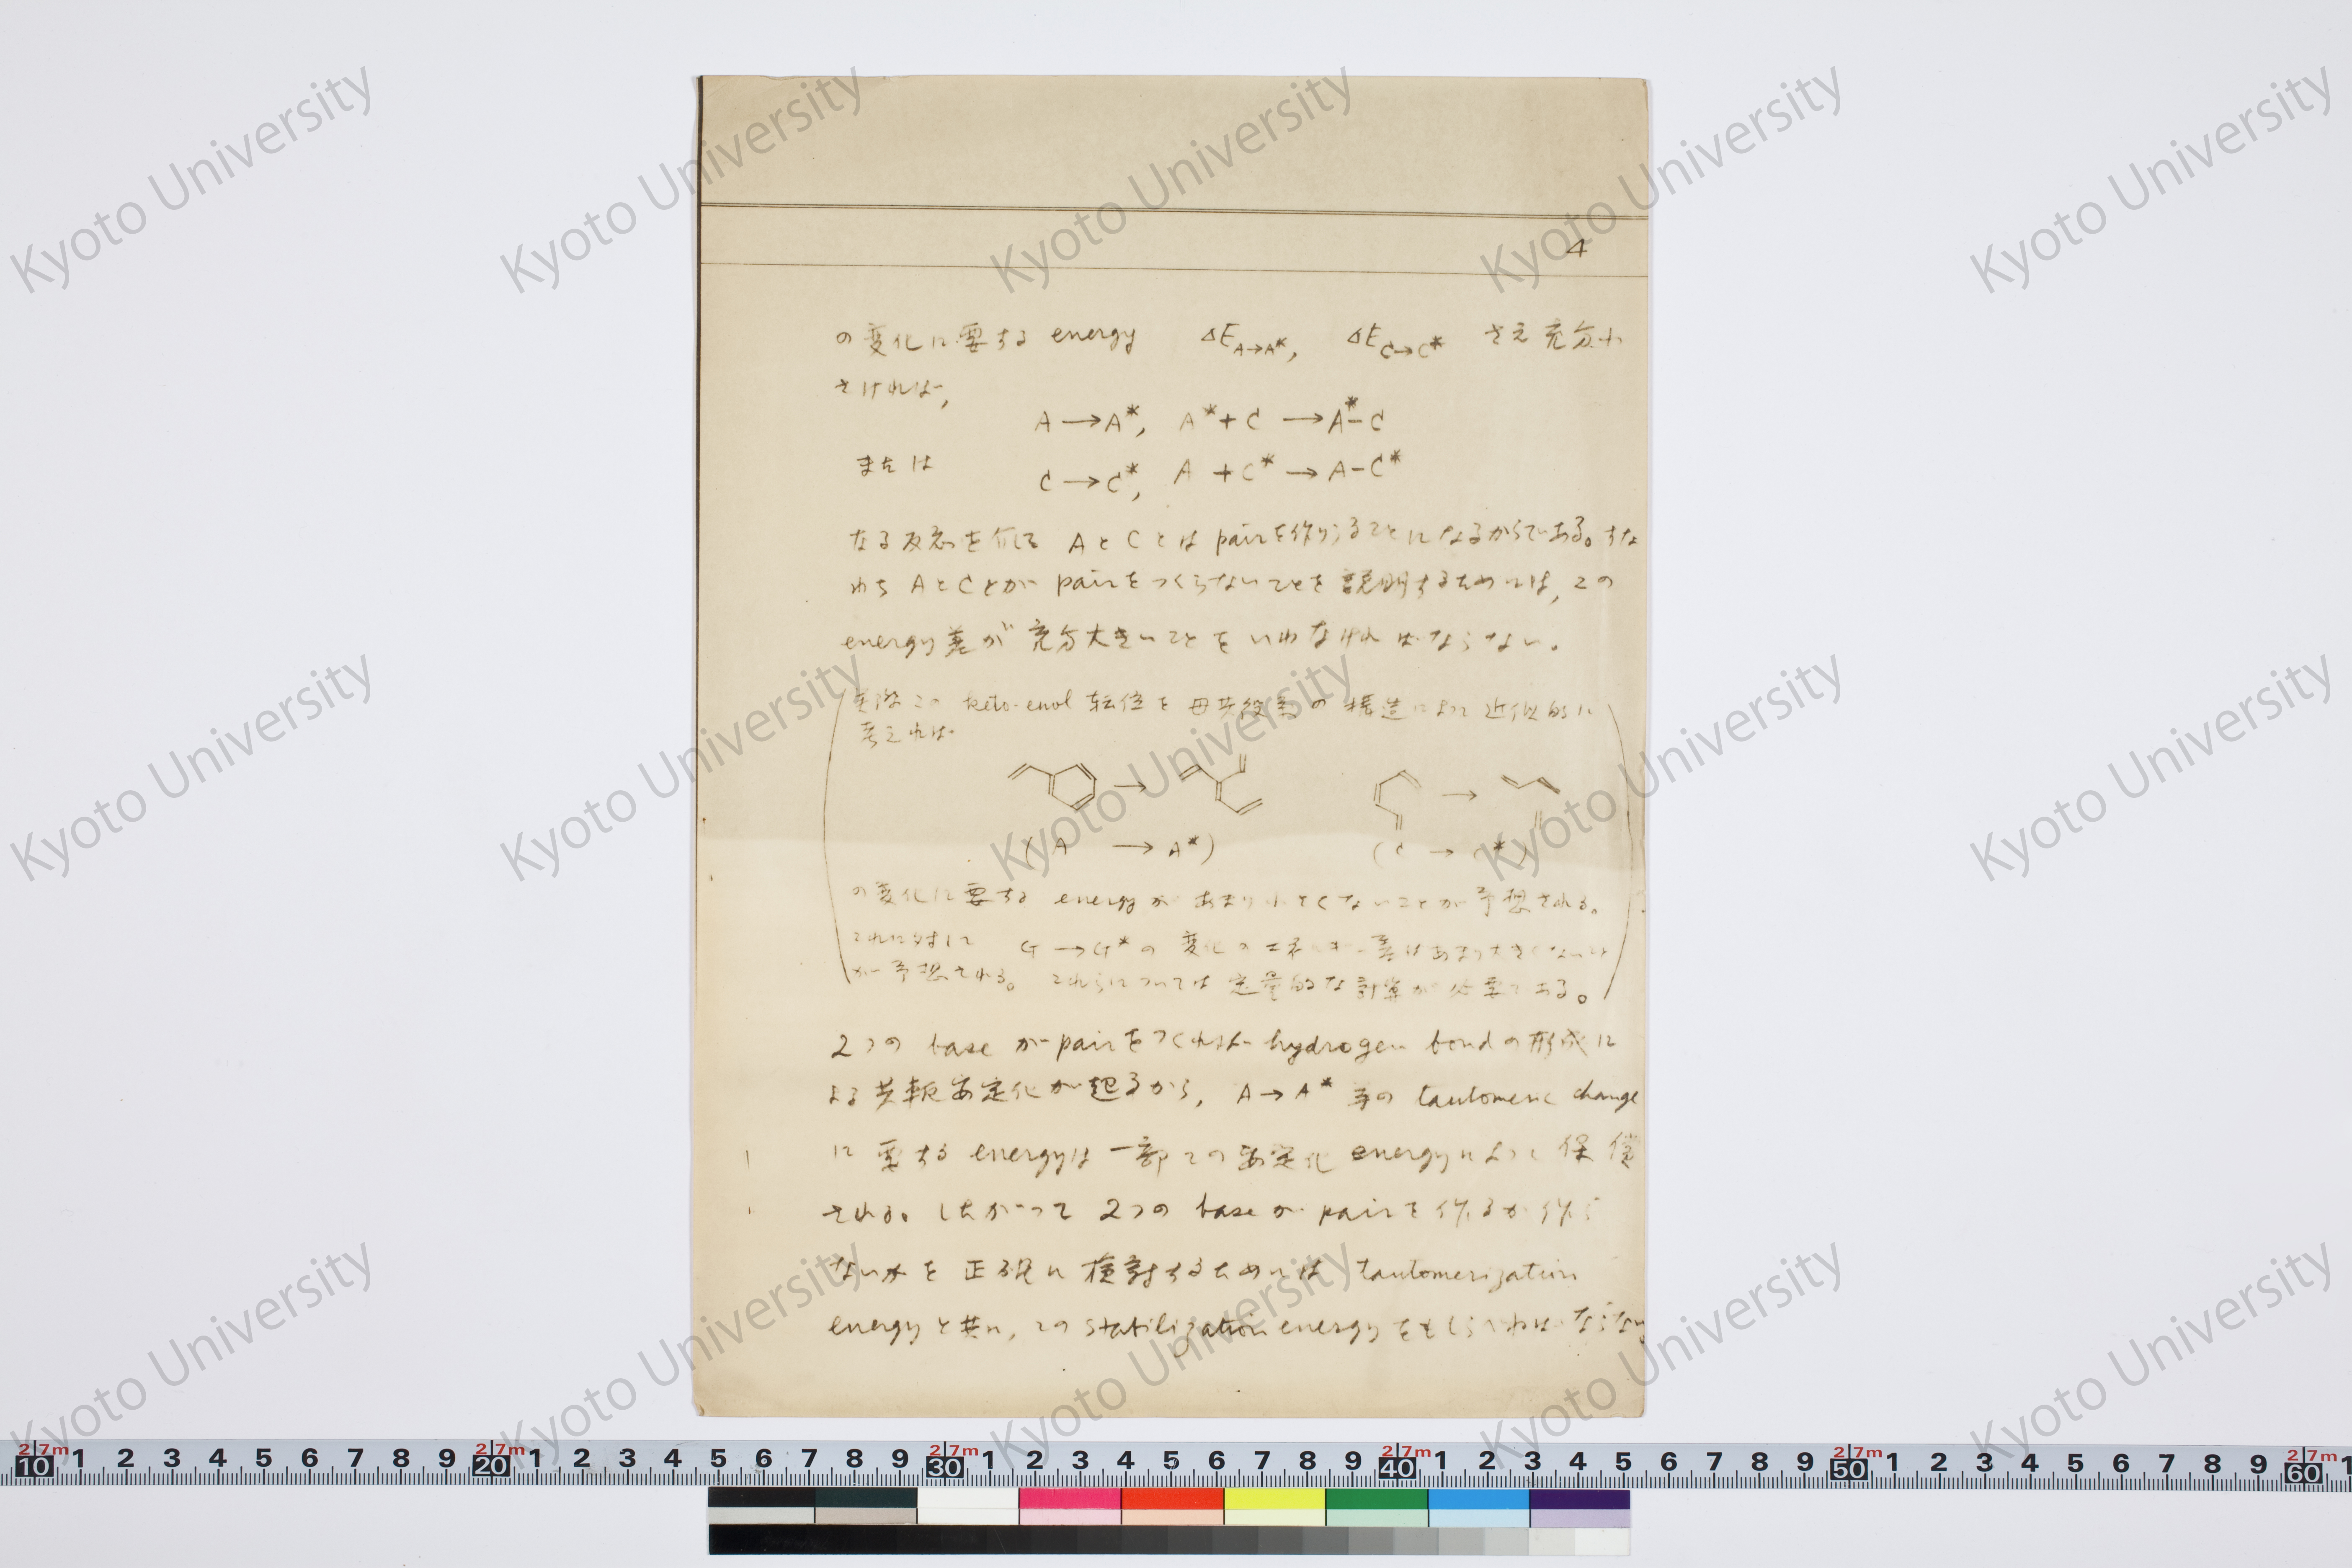 4
の変化に要する energy ΔE A→A*, ΔE C→C* さえ充分小
さければ,
A → A*, A* + C → A*-C
または C → C*, A + C* → A-C*
なる反応を介して AとCとは pairを作りうることになるからである。すな
わち AとCとが pairをつくらないことを説明するためには, この
energy差が充分大きいことをいわなければならない。
実際この keto-enol 転位を母共役系の構造によって近似的に
考えれば
→ →
(A → A*) (C → C*)
の変化に要する energyがあまり小さくないことが予想される。
これに対して G → G*の変化のエネルギー差はあまり大きくないこと
が予想される。これらについては定量的な計算が必要である。
2つの base が pairをつくれば hydrogen bondの形成に
よる共軛安定化が起るから, A→A* 等の tautomeric change
に要する energyは一部この安定化 energyによって保償
される。したがって 2つの baseが pairを作るか作ら
ないかを正確に検討するためには tautomerization
energyと共に, この stabilization energyをもしらべねばならない
Kyoto University
2.7m 10 1 2 3 4 5 6 7 8 9 2.7m 20 1 2 3 4 5 6 7 8 9 2.7m 30 1 2 3 4 5 6 7 8 9 2.7m 40 1 2 3 4 5 6 7 8 9 2.7m 50 1 2 3 4 5 6 7 8 9 2.7m 60 1